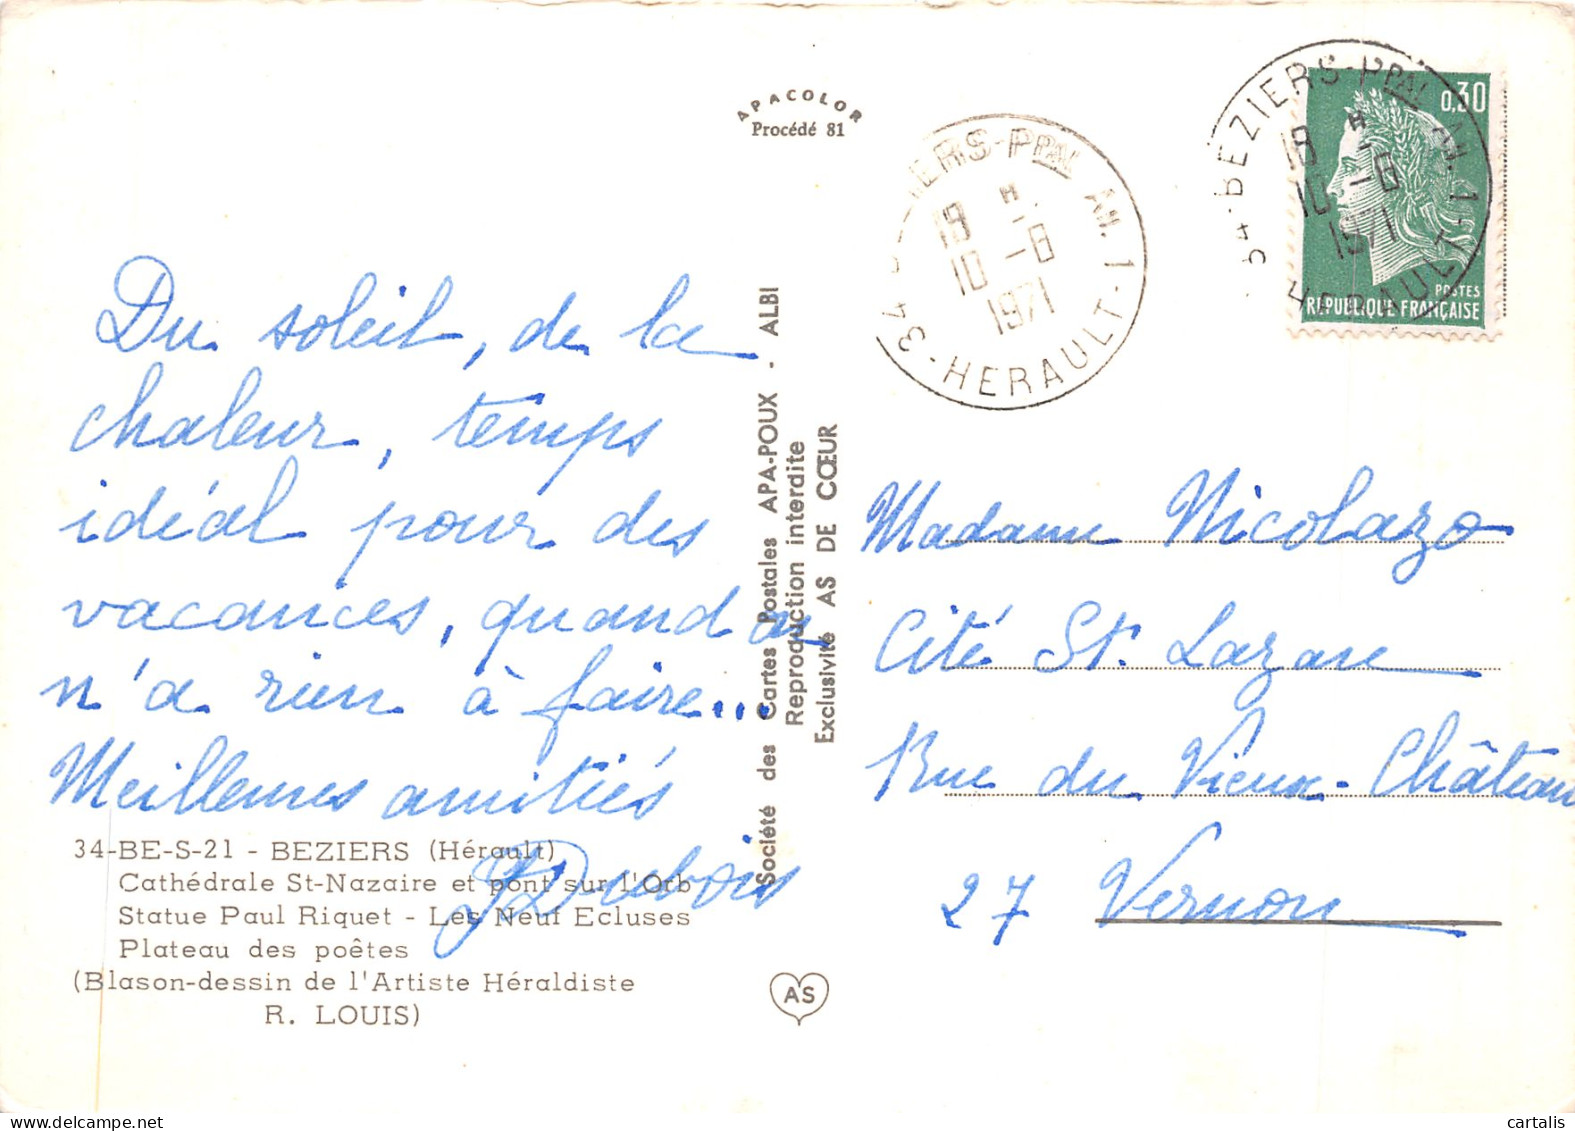 APACOLOR
Procédé 81
Du soleil, de la
chaleur, temps
idéal pour des
vacances, quand on
n'a rien à faire...
Meilleures amitiés
Dubois
34-BE-S-21 - BEZIERS (Hérault)
Cathédrale St-Nazaire et pont sur l'Orb
Statue Paul Riquet - Les Neuf Ecluses
Plateau des poêtes
(Blason-dessin de l'Artiste Héraldiste
R. LOUIS)
Société des Cartes Postales APA-POUX - ALBI
Reproduction interdite
Exclusivité AS DE CŒUR
AS
34 - BEZIERS-PPAL AN. 1 - HERAULT
19 H
10 -6
1971
34 - BEZIERS-PPAL AN. 1 - HERAULT
18 H
10 -6
1971
0,30
POSTES
REPUBLIQUE FRANÇAISE
Madame Nicolazo
Cité St. Lazare
Rue du Vieux-Château
27 Vernon
cartalis